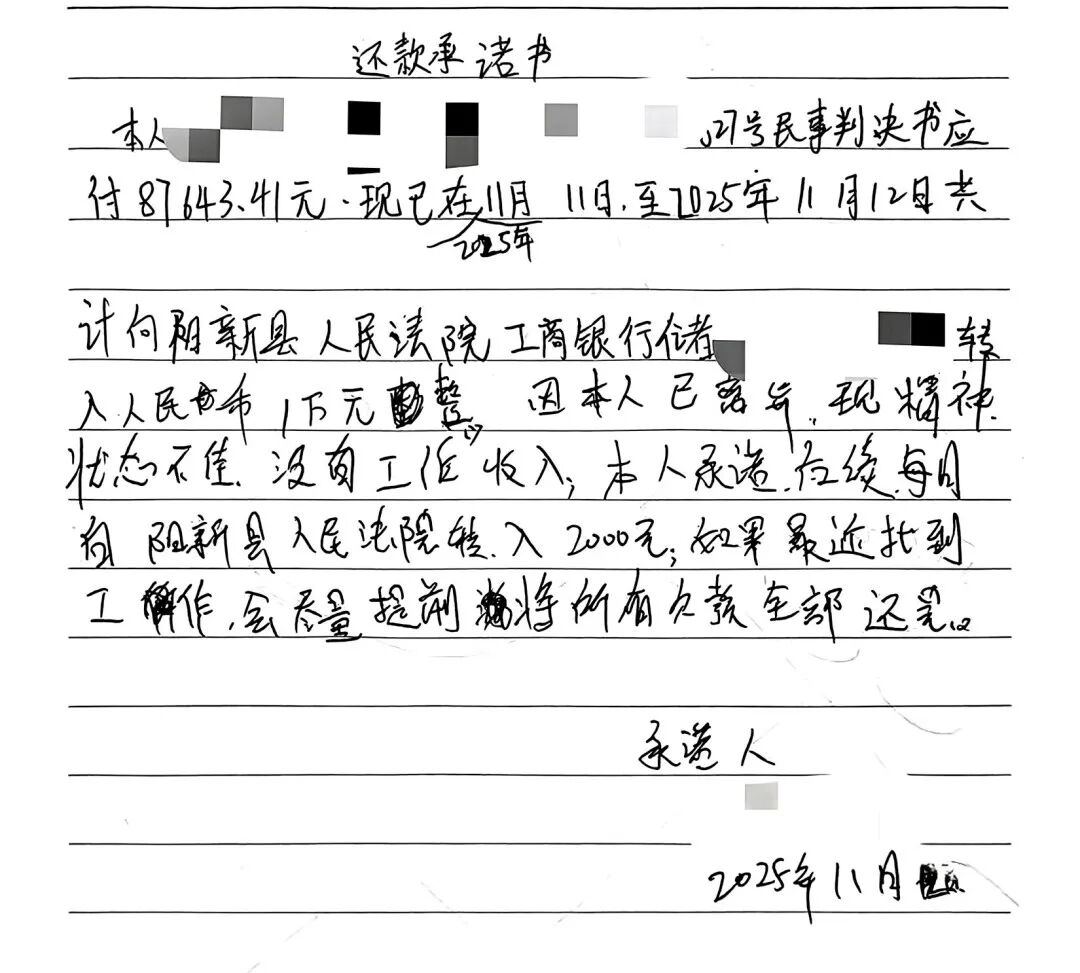 还款承诺书
本人 27号民事判决书应
付87643.41元.现已在11月11日.至2025年11月12日共
2025年
计向阳新县人民法院工商银行 转
入人民币1万元整。因本人已离异.现精神
状态不佳.没有工作收入;本人承诺.后续.每月
向阳新县人民法院转入2000元;如果最近找到
工作.会尽量提前将所有欠款全部还完。
承诺人
2025年11月